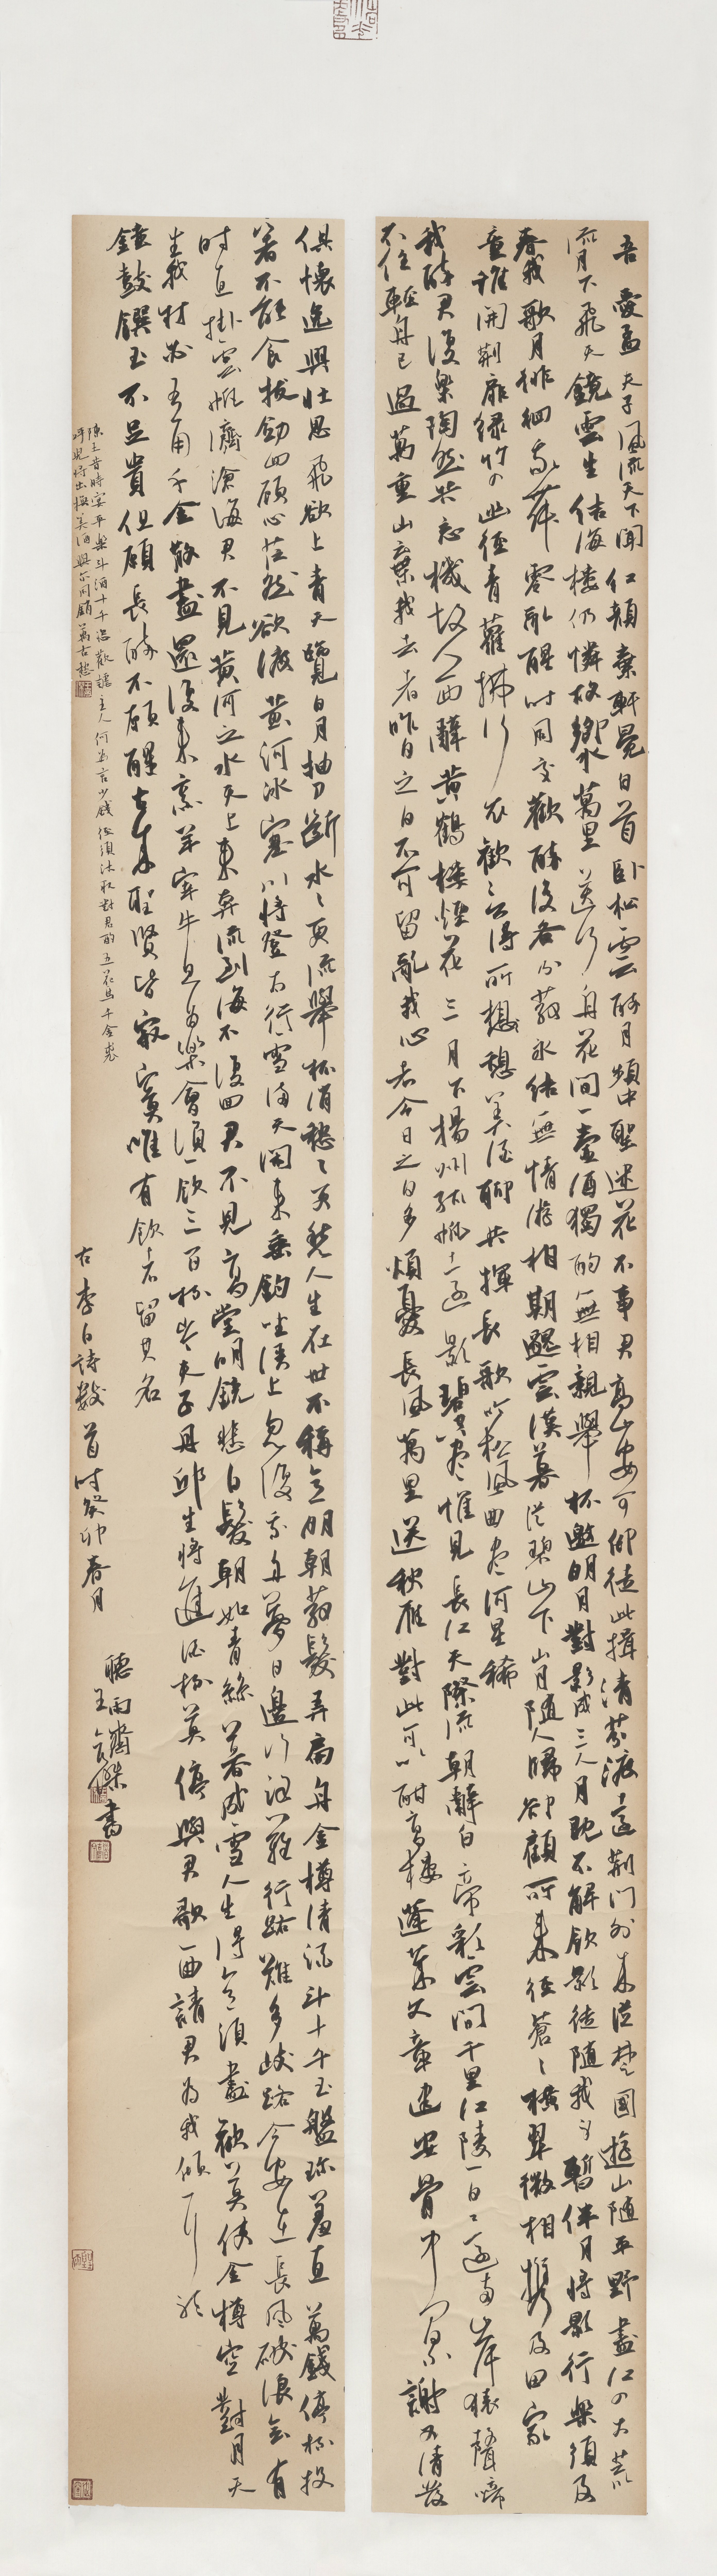 吾愛孟夫子風流天下聞紅顏棄軒冕白首臥松雲醉月頻中聖迷花不事君高山安可仰徒此揖清芬渡遠荊門外來從楚國遊山隨平野盡江入大荒
流月下飛天鏡雲生結海樓仍憐故鄉水萬里送行舟花間一壺酒獨酌無相親舉杯邀明月對影成三人月既不解飲影徒隨我身暫伴月將影行樂須及
春我歌月徘徊我舞零亂醒時同交歡醉後各分散永結無情遊相期邈雲漢暮從碧山下山月隨人歸卻顧所來徑蒼〻橫翠微相攜及田家
童稚開荊扉綠竹入幽徑青蘿拂行衣歡言得所憩美酒聊共揮長歌吟松風曲盡河星稀
我醉君復樂陶然共忘機故人西辭黃鶴樓煙花三月下揚州孤帆遠影碧空盡惟見長江天際流朝辭白帝彩雲間千里江陵一日還兩岸猿聲啼
不住輕舟已過萬重山棄我去者昨日之日不可留亂我心者今日之日多煩憂長風萬里送秋雁對此可以酣高樓蓬萊文章建安骨中間小謝又清發
俱懷逸興壯思飛欲上青天覽日月抽刀斷水〻更流舉杯消愁〻更愁人生在世不稱意明朝散髮弄扁舟金樽清酒斗十千玉盤珍羞直萬錢停杯投
箸不能食拔劍四顧心茫然欲渡黃河冰塞川將登太行雪滿天閒來垂釣坐溪上忽復乘舟夢日邊行路難行路難多歧路今安在長風破浪會有
時直掛雲帆濟滄海君不見黃河之水天上來奔流到海不復回君不見高堂明鏡悲白髮朝如青絲暮成雪人生得意須盡歡莫使金樽空對月天
生我材必有用千金散盡還復來烹羊宰牛且為樂會須一飲三百杯岑夫子丹邱生將進酒杯莫停與君歌一曲請君為我傾耳聽
鐘鼓饌玉不足貴但願長醉不願醒古來聖賢皆寂寞唯有飲者留其名
陳王昔時宴平樂斗酒十千恣歡謔主人何為言少錢徑須沽取對君酌五花馬千金裘
呼兒將出換美酒與爾同銷萬古愁
右李白詩數首時癸卯春月
聽雨齋
王 傑書